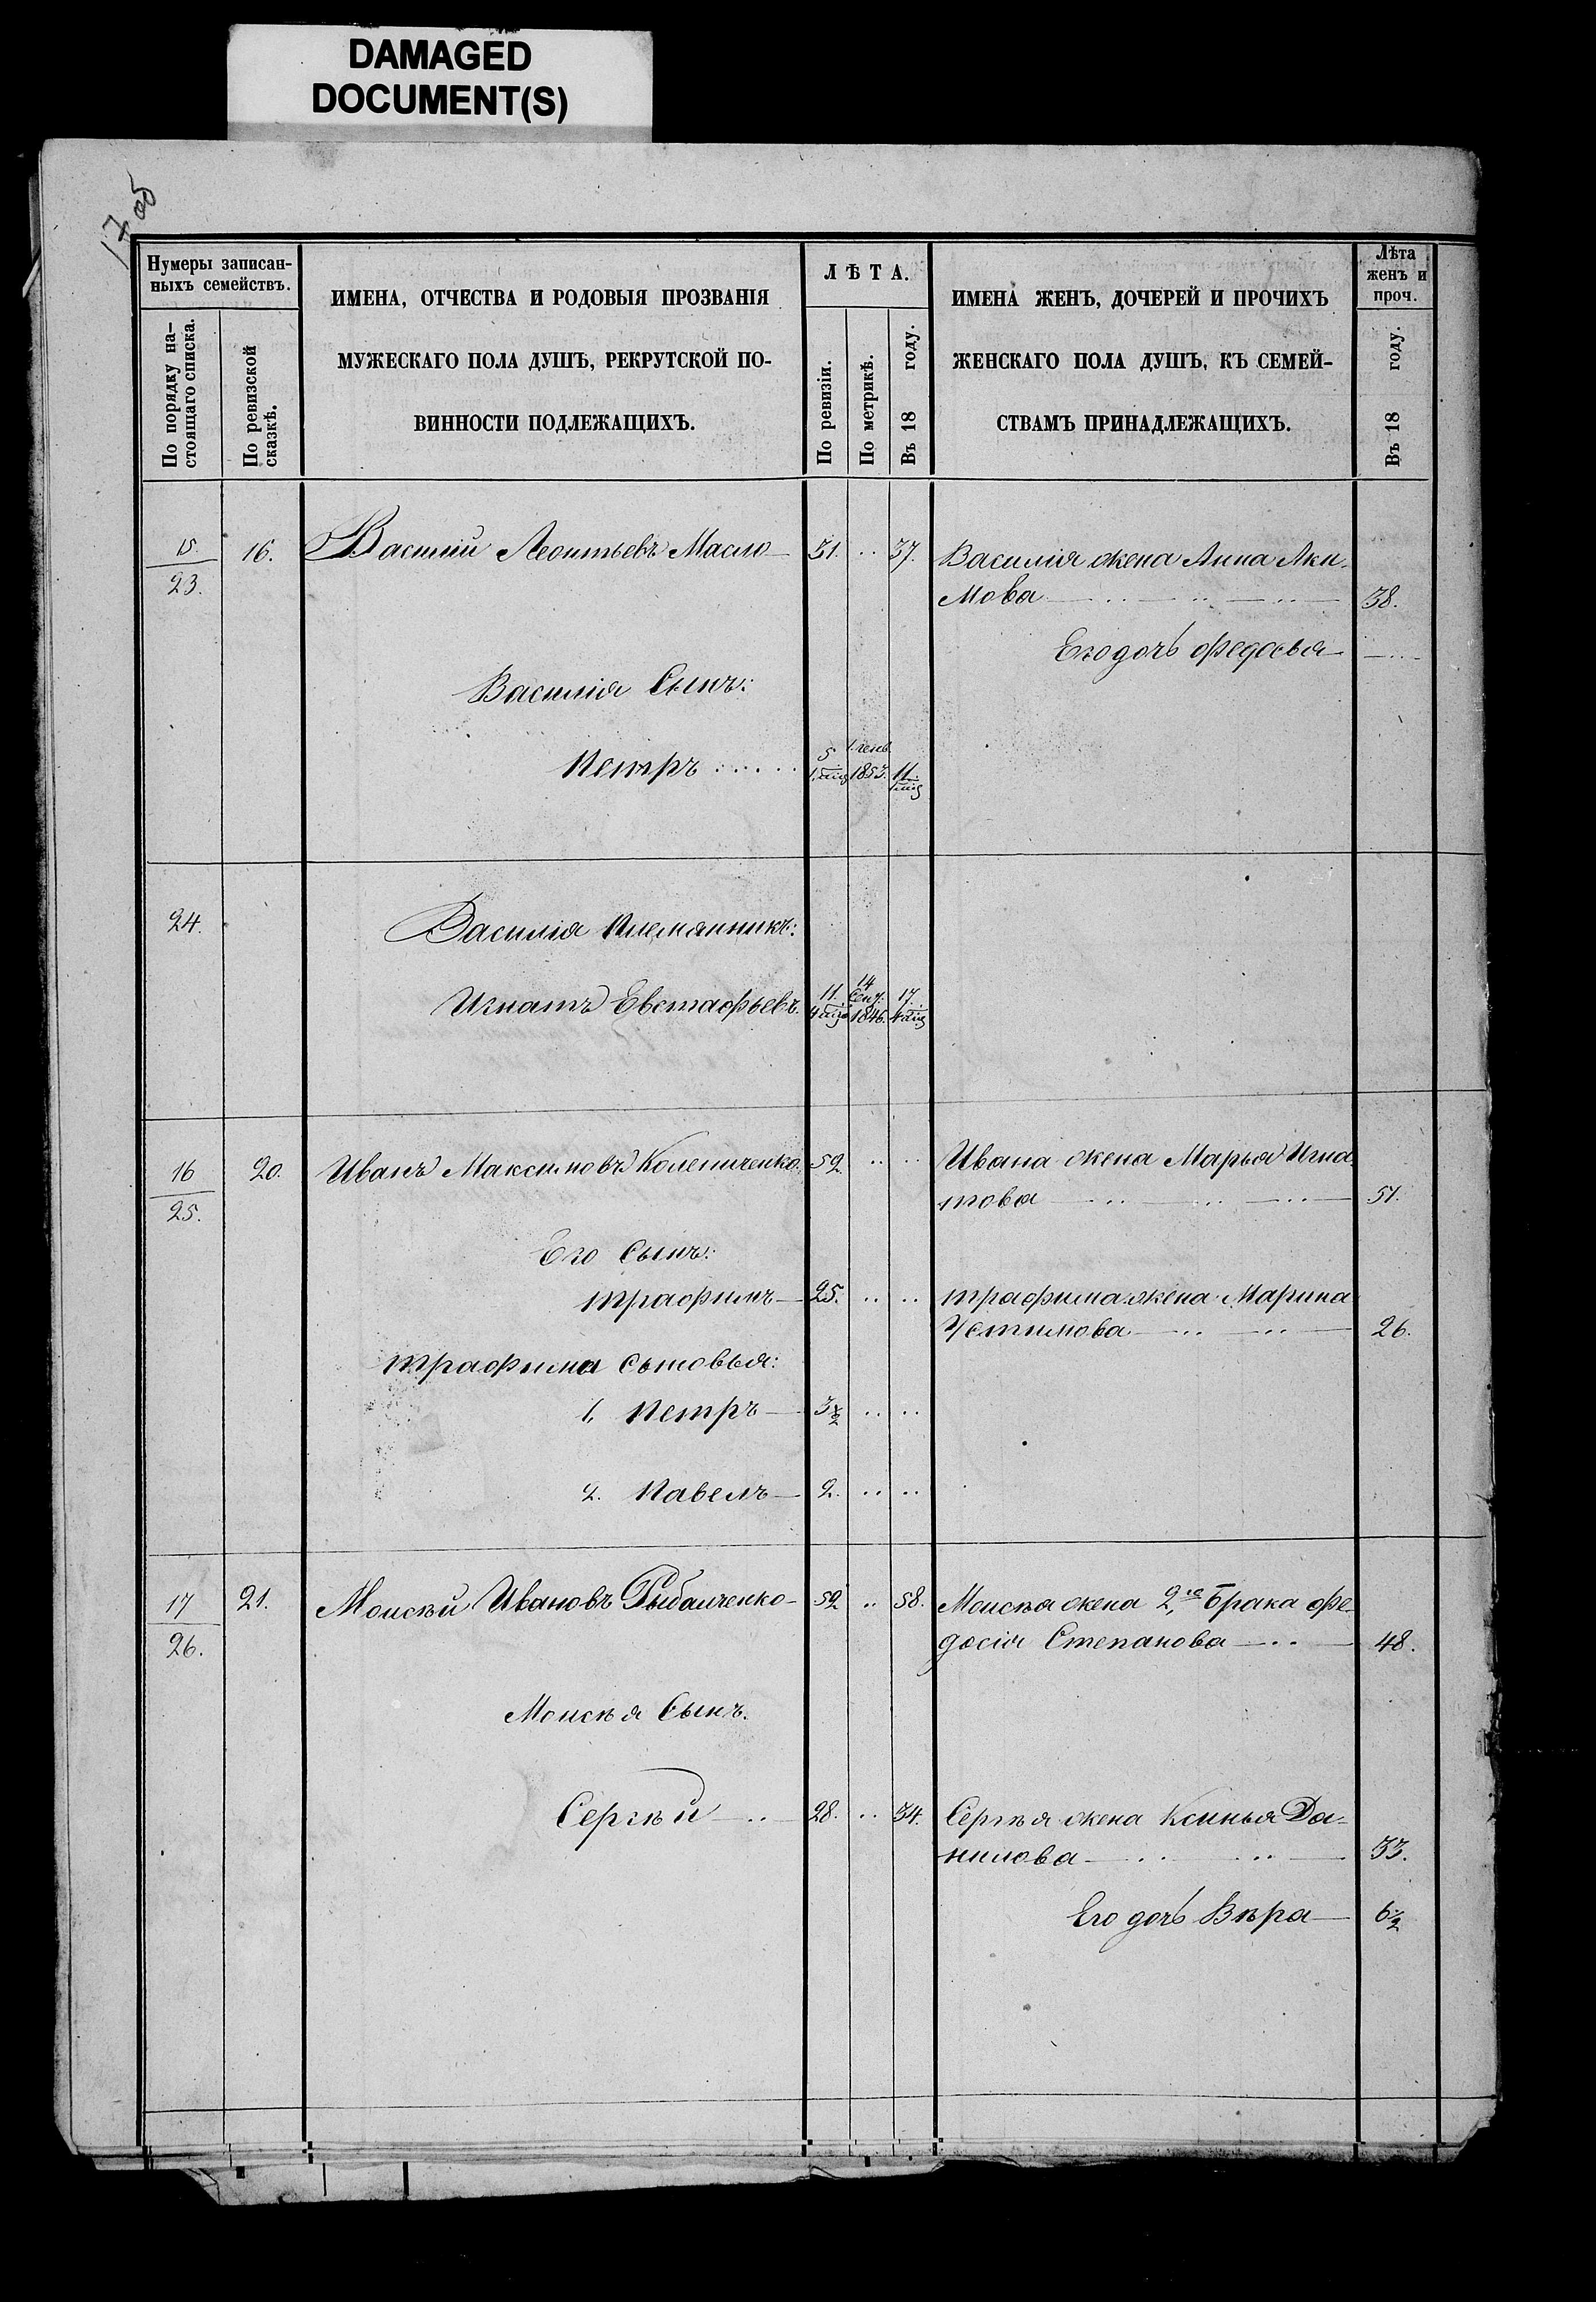 DAMAGED
DOCUMENT(S)
17 об
Нумеры записан-
ныхъ семействъ.
По порядку на-
стоящаго списка.
По ревизской
сказкѣ.
ИМЕНА, ОТЧЕСТВА И РОДОВЫЯ ПРОЗВАНІЯ
МУЖЕСКАГО ПОЛА ДУШЪ, РЕКРУТСКОЙ ПО-
ВИННОСТИ ПОДЛЕЖАЩИХЪ.
ЛѢТА.
По ревизіи.
По метрикѣ.
Въ 18 году.
ИМЕНА ЖЕНЪ, ДОЧЕРЕЙ И ПРОЧИХЪ
ЖЕНСКАГО ПОЛА ДУШЪ, КЪ СЕМЕЙ-
СТВАМЪ ПРИНАДЛЕЖАЩИХЪ.
Лѣта
женъ и
проч.
Въ 18 году.
15. 16. Василій Леонтьевъ Масло 31. 37. Василія жена Анна Аки-
23. мова 38.
Его дочь Федосья
Василія Сынъ:
Петръ 5 1853. 11.
24. Василія племянникъ:
Игнатъ Евстафьевъ. 11. 14 Сен. 17.
4 1846. 4
16 20. Иванъ Максимовъ 59. Ивана жена Марья Игна-
25. това 51.
Его Сынъ:
Трафимъ 25. Трафима жена Марина
Устимова 26.
Трафима сыновья:
1, Петръ 3½
2. Павелъ 2.
17 21. Моисѣй Ивановъ Рыбалченко 52 58. Моисѣя жена 2,го брака Фе-
26. досія Степанова 48.
Моисѣя Сынъ.
Сергѣй 28. 34. Сергѣя жена Ксинья Да-
нилова 33.
Его дочь Вѣра 6½